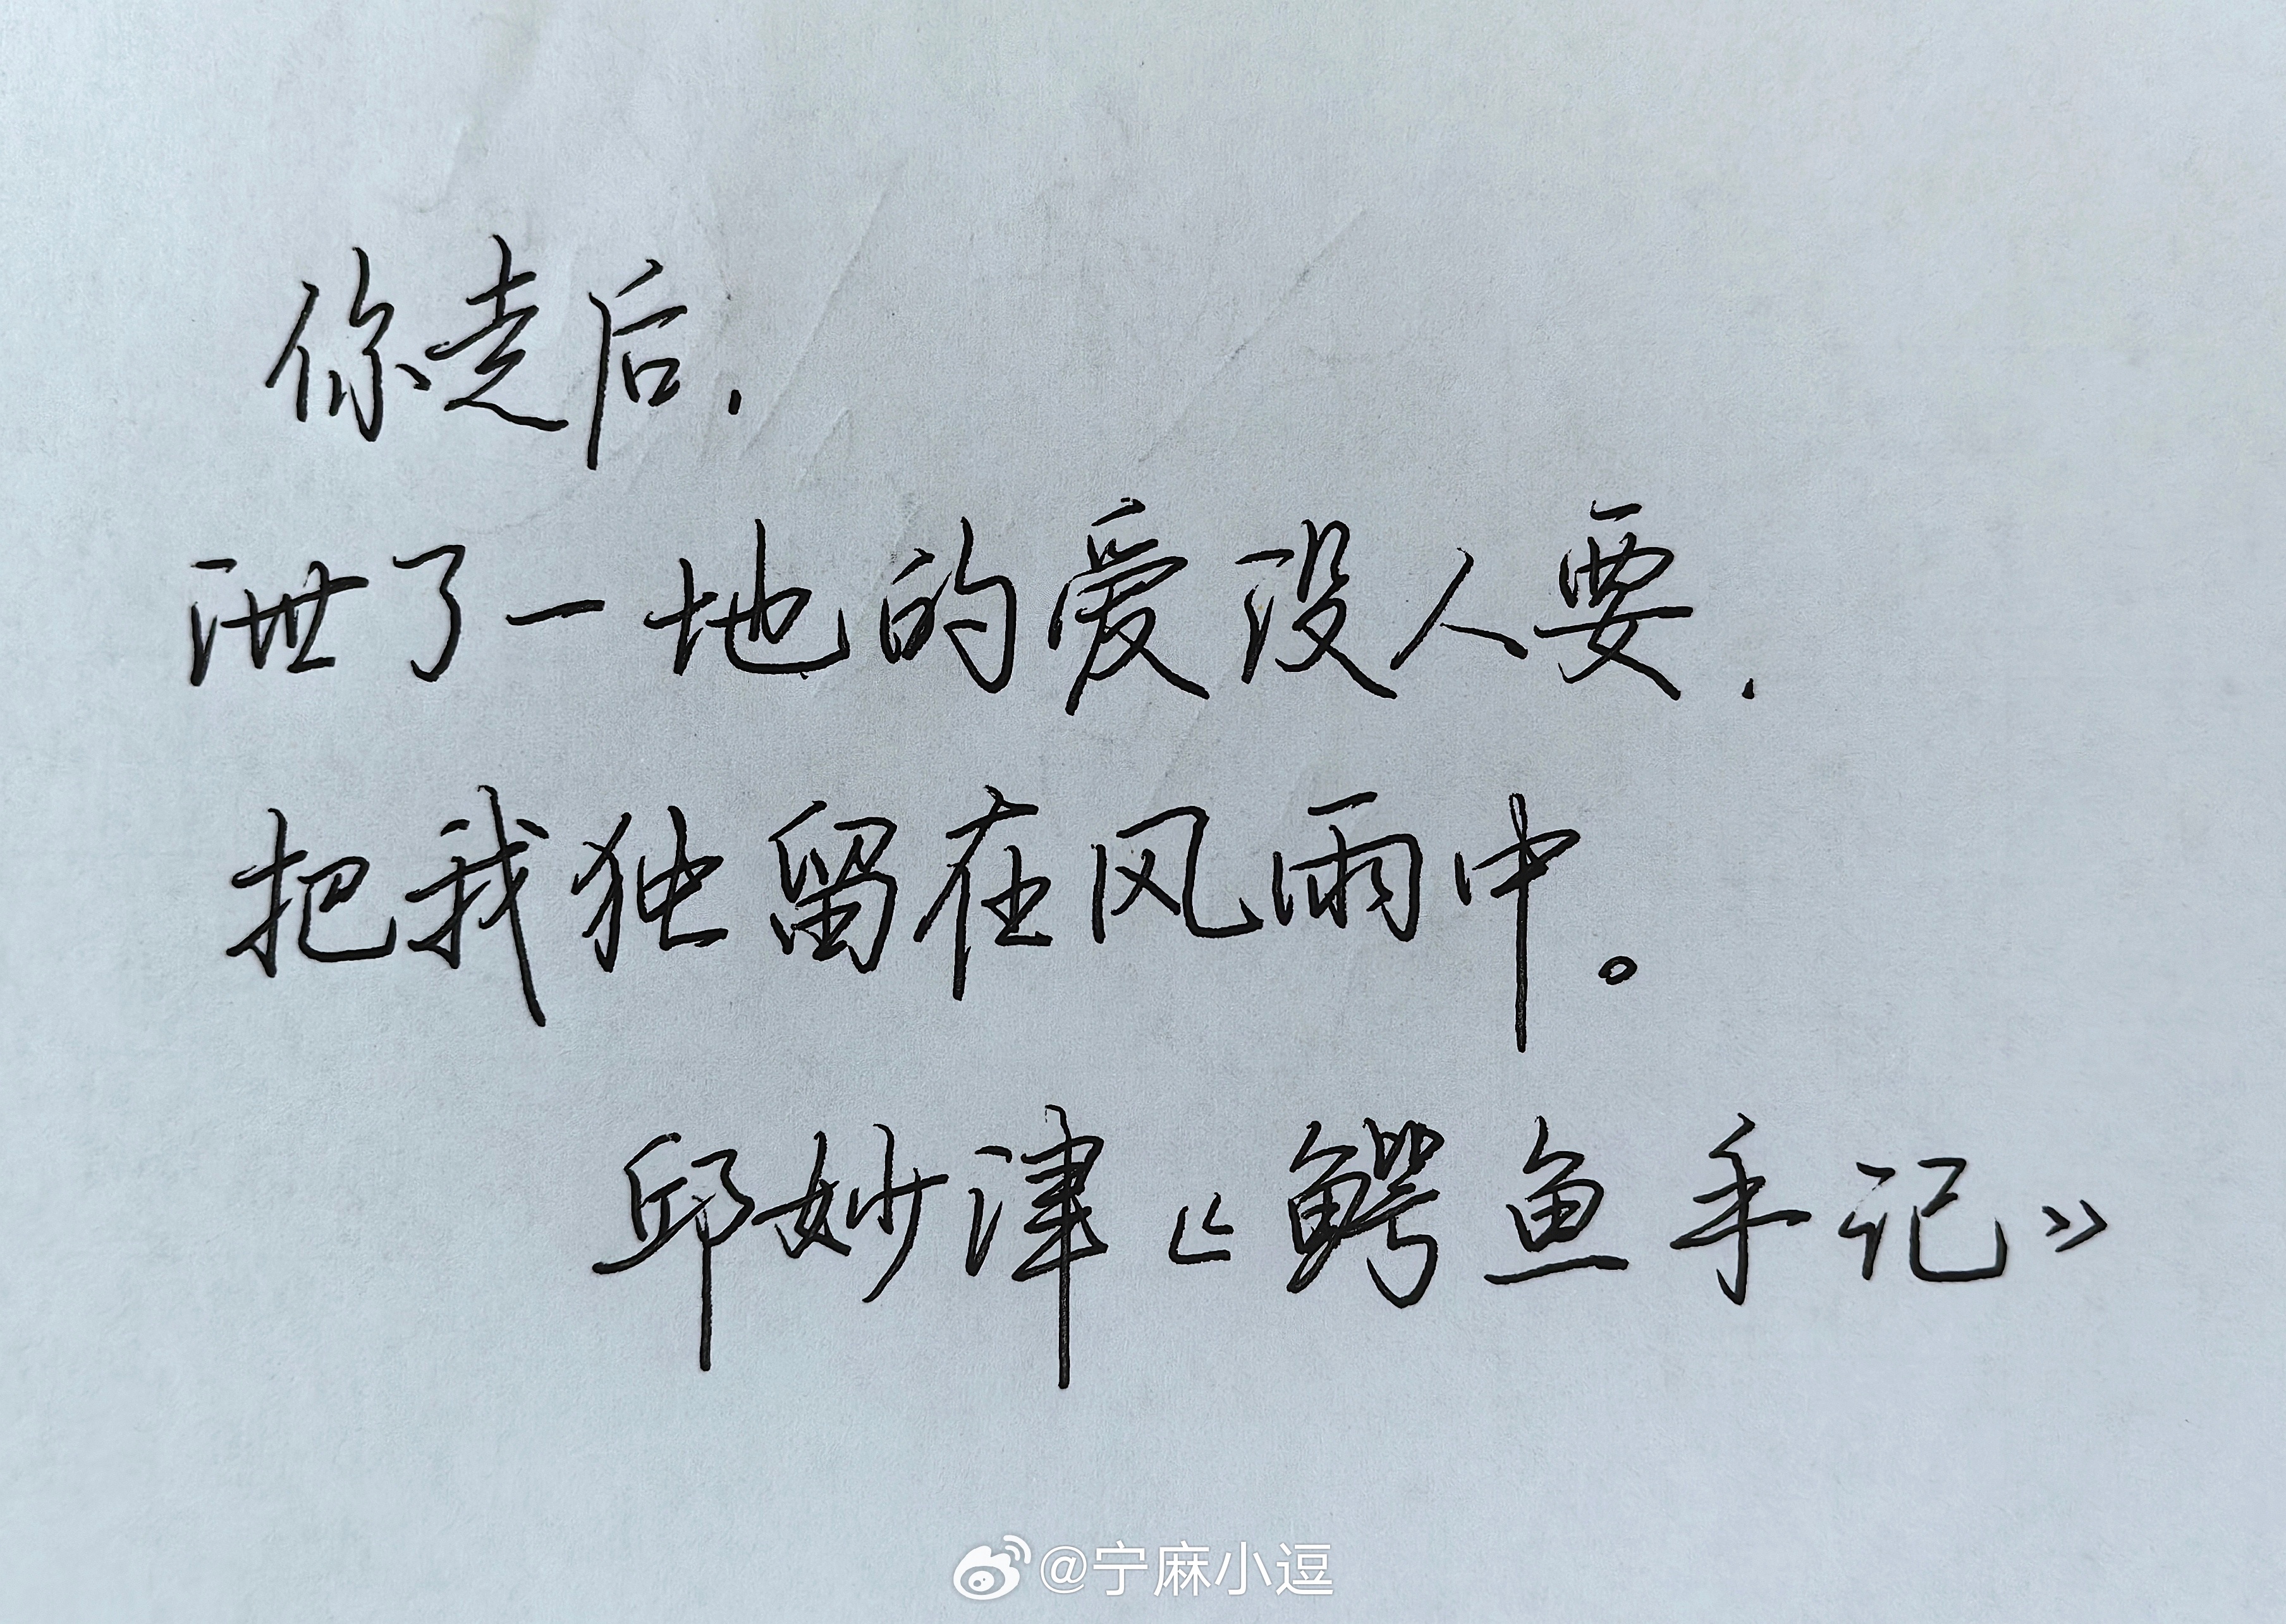 你走后，
泄了一地的爱没人要，
把我独留在风雨中。
邱妙津《鳄鱼手记》
@宁麻小逗